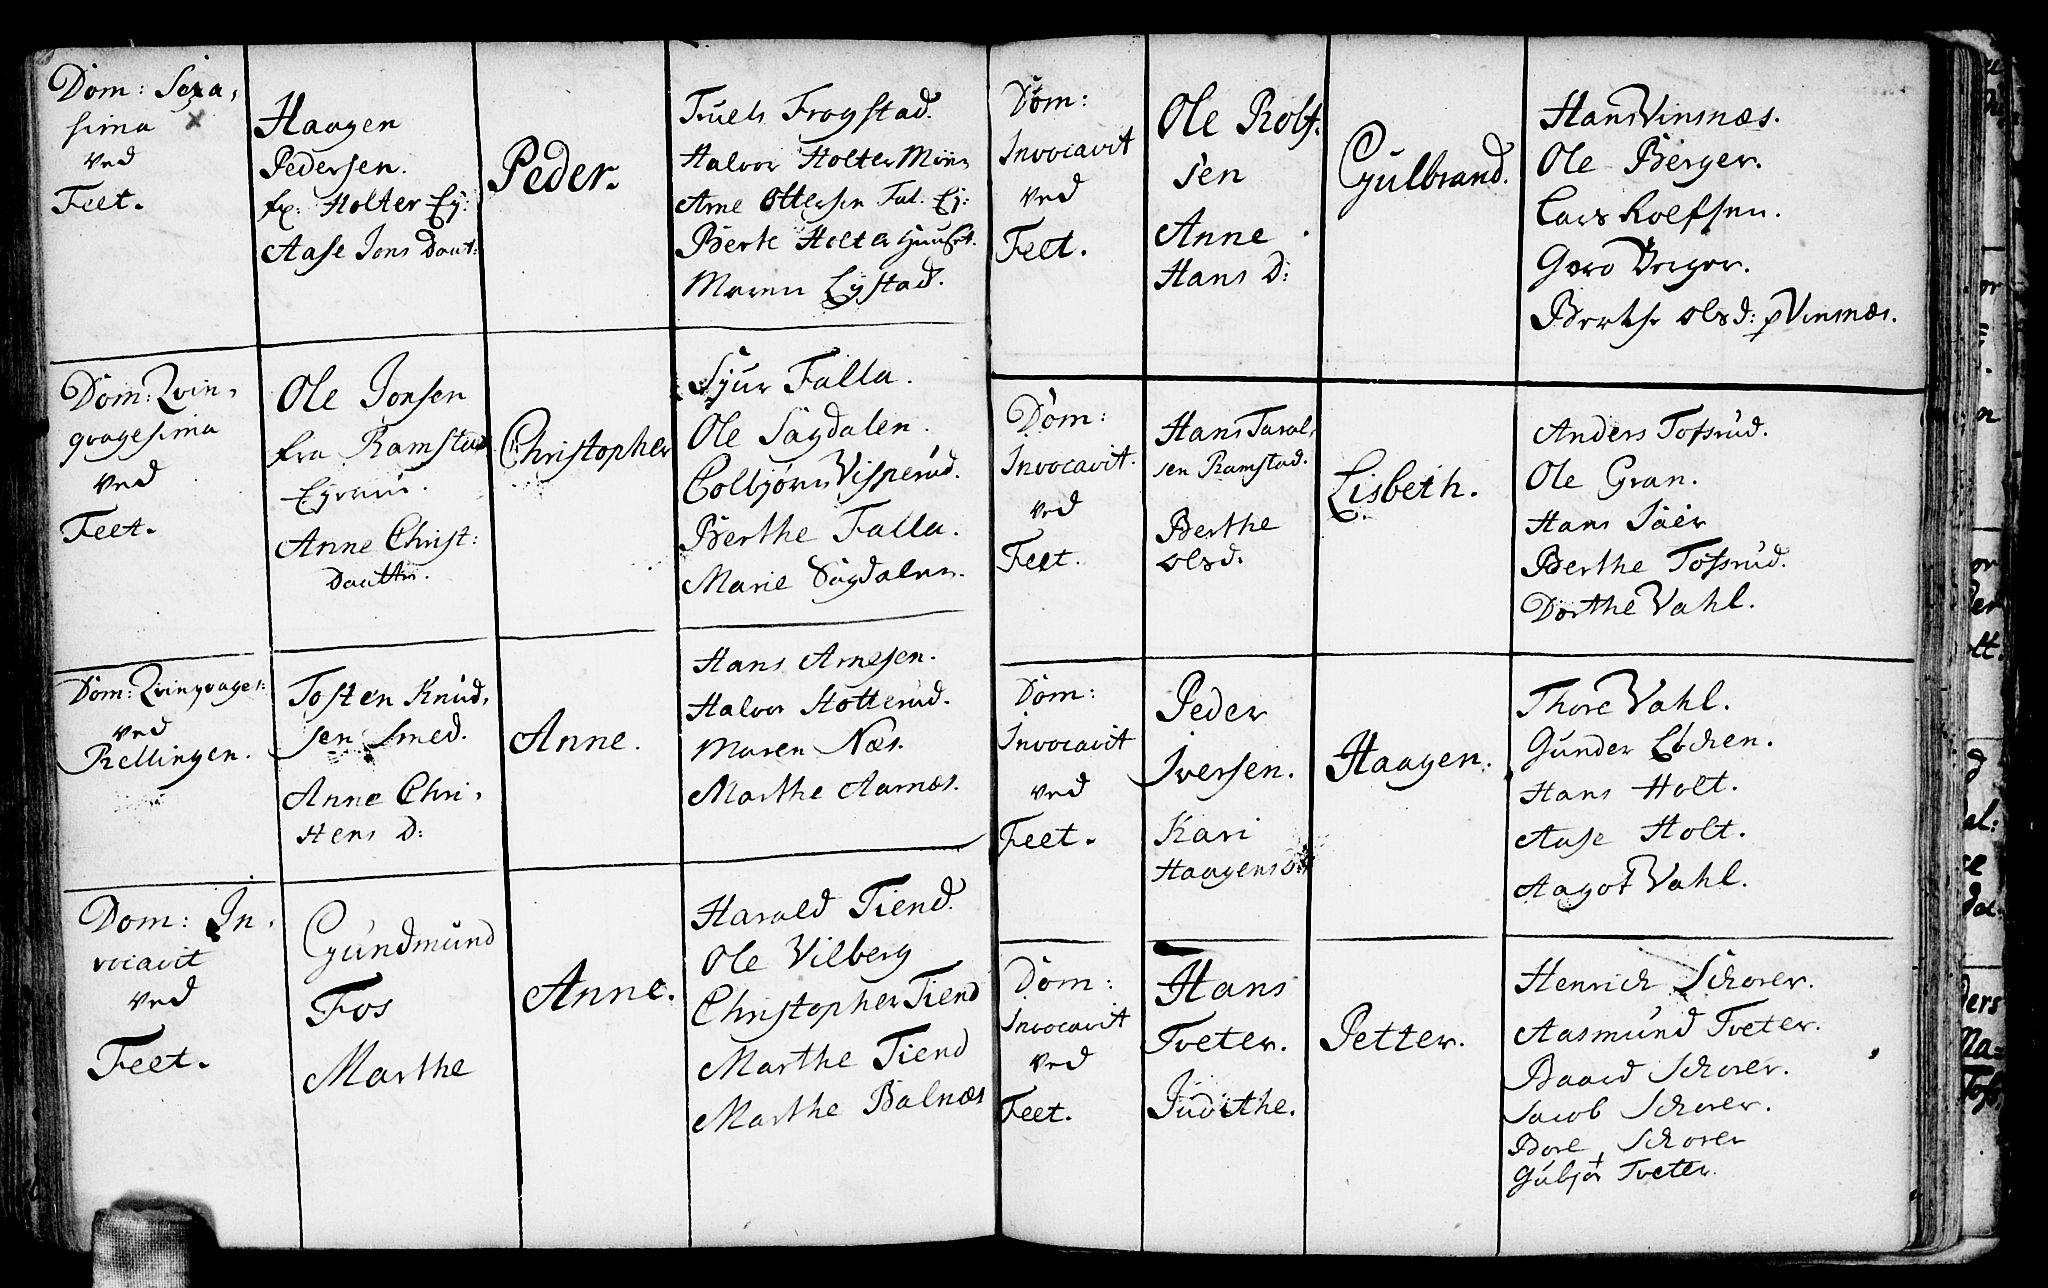 Dom: Sexa,
sima
ved
Feet.
Haagen
Pedersen.
fr: Holter Ej:
Aase Jons Daat:
Peder.
Truels Frogstad.
Halvor Holter Min,
Arne Ottersen Fal. Ej:
Berte Holter Huuset.
Maren Lystad.
Dom: Qvin,
qvagesima
ved
Feet.
Ole Jonsen
fra Ramstad
Ejerm.
Anne Christ:
Daatter.
Christopher
Sjur Falla.
Ole Sagdalen.
Colbjørn Visperud.
Berthe Falla.
Marie Sagdalen.
Dom: Qvinqvages:
ved
Rellingen.
Tosten Knud,
sen Smed.
Anne Chri,
stens D:
Anne.
Hans Arnesen.
Halvor Hotterud.
Maren Næs.
Marthe Aarnæs.
Dom: In,
vocavit
ved
Feet.
Gundmund
Fos
Marthe
Anne.
Harald Tiend.
Ole Vilberg
Christopher Tiend
Marthe Tiend
Marthe Balnæs
Dom:
Invocavit
ved
Feet.
Ole Rolf,
sen
Anne
Hans D:
Gulbrand.
Hans Vinsnæs.
Ole Berger.
Lars Rolfsen.
Goro Berger.
Berthe Olsd: p Vinsnæs.
Dom:
Invocavit.
ved
Feet.
Hans Taral,
sen Ramstad.
Berthe
Olsd.
Lisbeth.
Anders Tofsrud.
Ole Gran.
Hans Saer
Berthe Tofsrud.
Dorthe Vahl.
Dom:
Invocavit
ved
Feet.
Peder
Iversen.
Kari
Haagens D:
Haagen.
Thore Vahl.
Gunder Løchen.
Hans Holt.
Aase Holt.
Aagot Vahl.
Dom:
Invocavit
ved
Feet.
Hans
Tveter.
Judithe.
Petter.
Henrich Schorer.
Aasmund Tveter.
Baard Schorer.
Jacob Schorer.
Borel Schorer
Gubjør Tveter.